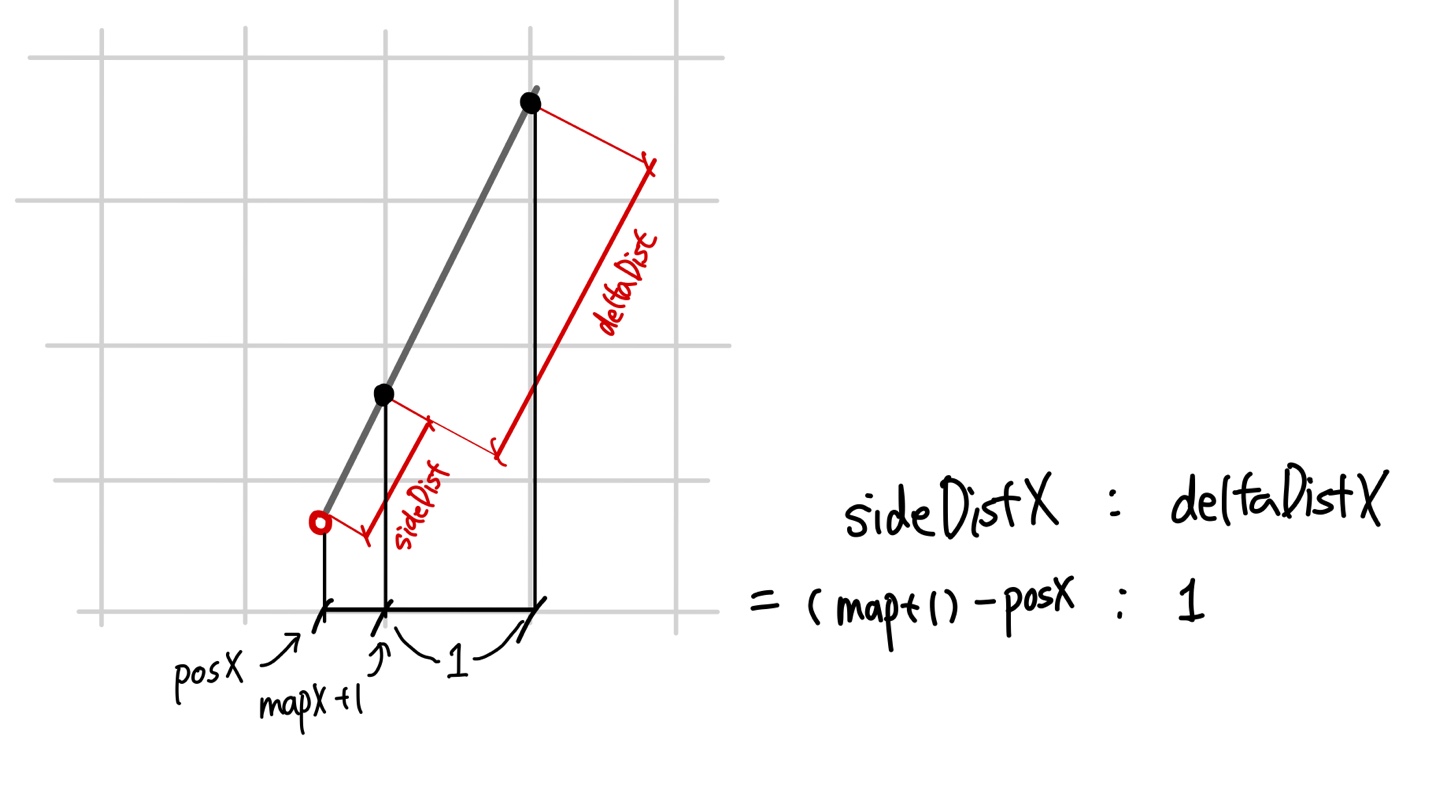 deltaDist
sideDist
posX
mapX+1
1
sideDistX : deltaDistX
= (map+1) - posX : 1